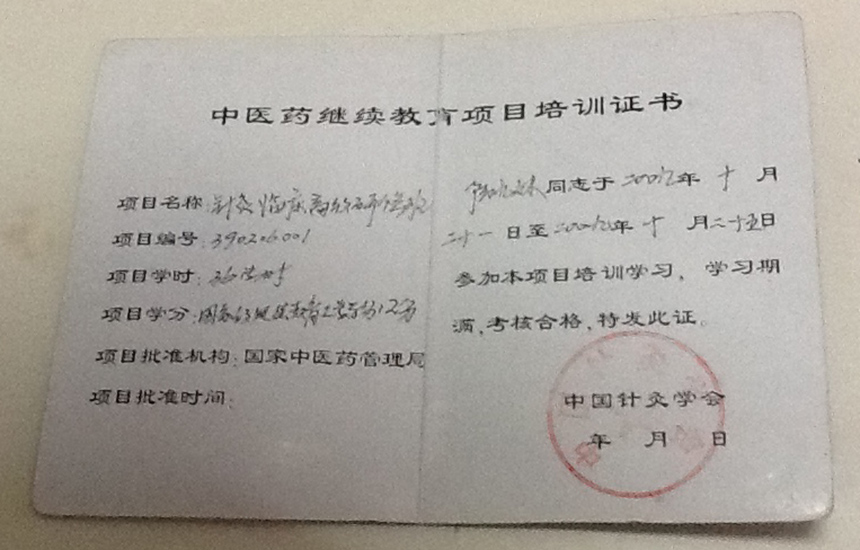 中医药继续教育项目培训证书
项目名称:针灸临床
项目编号:390206001
项目学时:
项目学分:国家级继续教育I类学分12分
项目批准机构:国家中医药管理局
项目批准时间:
同志于二00九年十月
二十一日至二00九年十月二十五日
参加本项目培训学习,学习期
满,考核合格,特发此证。
中国针灸学会
年月日